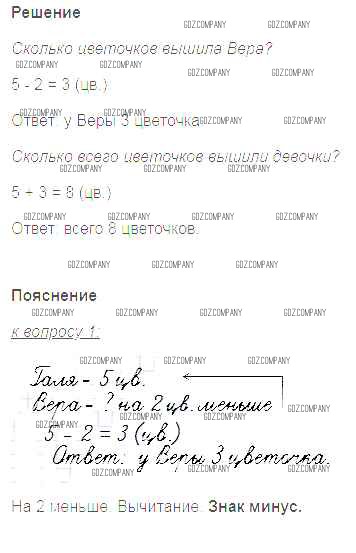 Решение
GDZCOMPANY GDZCOMPANY
Сколько цветочков вышила Вера?
GDZCOMPANY GDZCOMPANY GDZCOMPANY
5 - 2 = 3 (цв.)
GDZCOMPANY GDZCOMPANY
Ответ: у Веры 3 цветочка.
GDZCOMPANY GDZCOMPANY
Сколько всего цветочков вышили девочки?
GDZCOMPANY GDZCOMPANY GDZCOMPANY
5 + 3 = 8 (цв.)
GDZCOMPANY GDZCOMPANY GDZCOMPANY GDZCOMPANY
Ответ: всего 8 цветочков.
GDZCOMPANY GDZCOMPANY GDZCOMPANY
Пояснение
GDZCOMPANY GDZCOMPANY GDZCOMPANY GDZCOMPANY
к вопросу 1:
GDZCOMPANY GDZCOMPANY GDZCOMPANY
Галя - 5 цв.
Вера - ? на 2 цв. меньше
GDZCOMPANY
GDZCOMPANY
5 - 2 = 3 (цв.)
GDZCOMPANY GDZCOMPANY GDZCOMPANY
Ответ: у Веры 3 цветочка.
GDZCOMPANY GDZCOMPANY GDZCOMPANY
На 2 меньше. Вычитание. Знак минус.